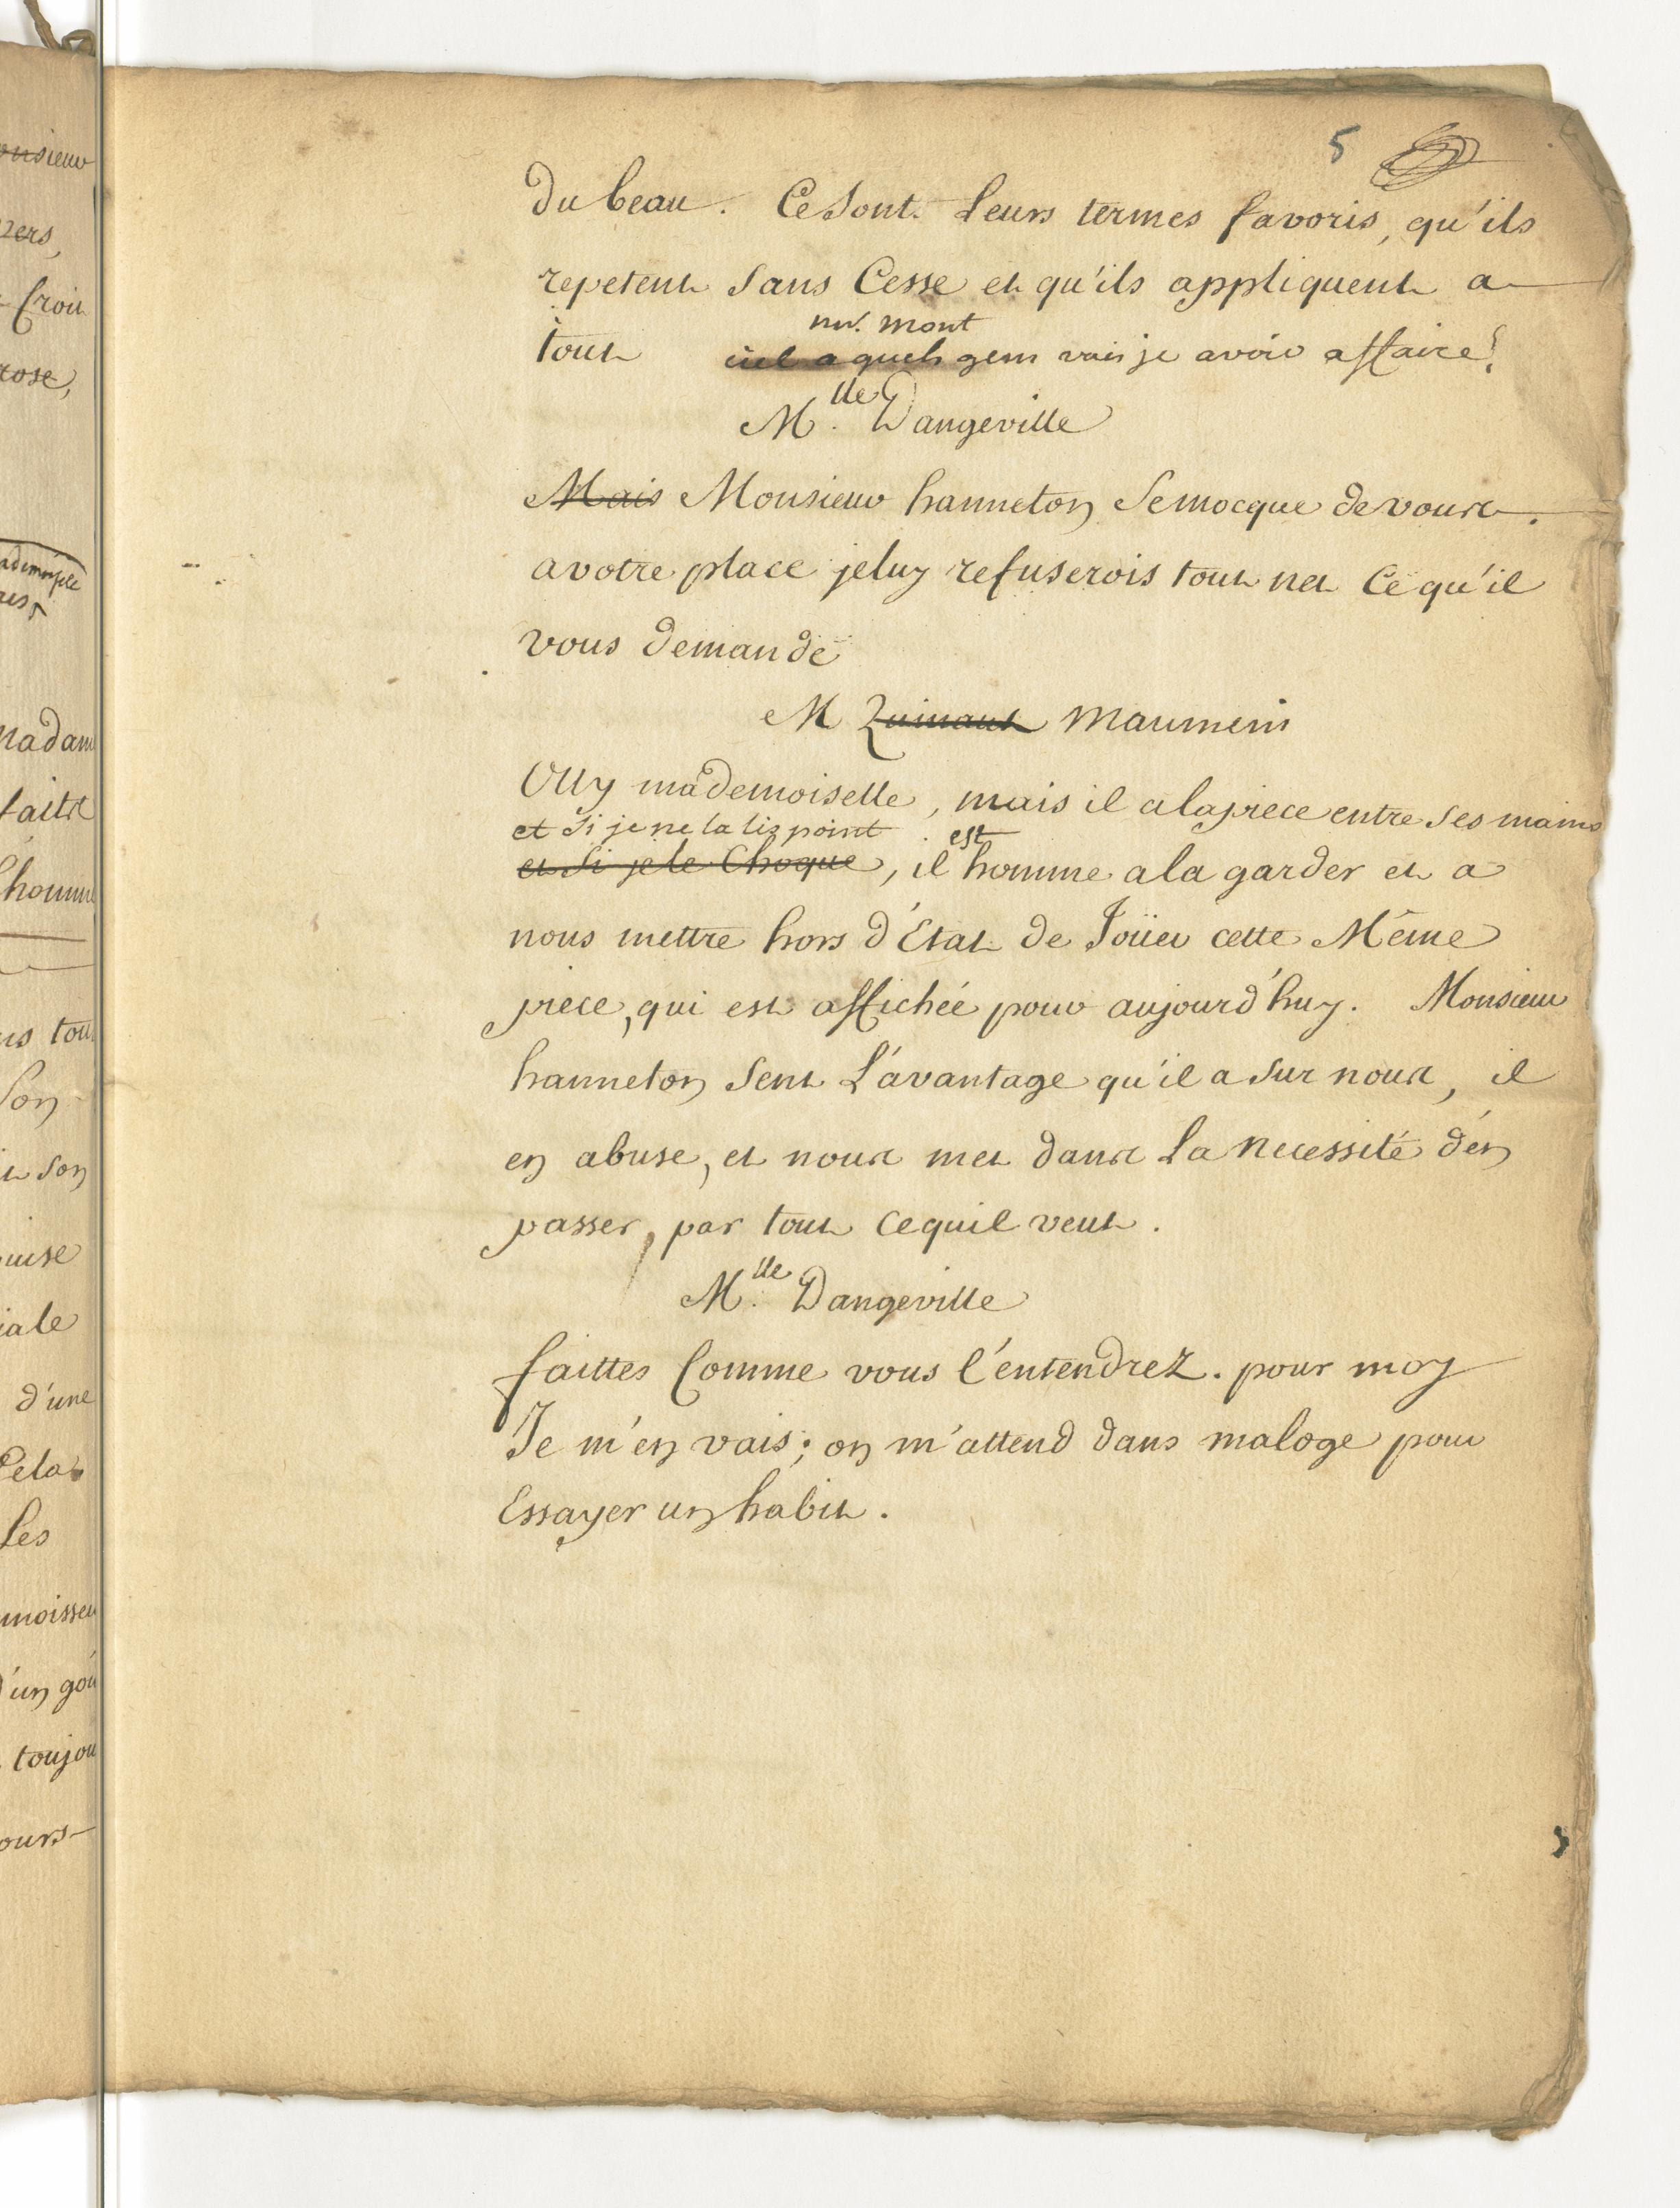 5
du beau. Ce sont leurs termes favoris, qu'ils
repetent sans Cesse et qu'ils appliquent a
mr. mont
tout ciel a quels gens vais je avoir affaire!
Mlle. Dangeville
Mais Monsieur hanneton Semocque de vous.
a votre place jeluy refuserois tout net Ce qu'il
vous demande
M Quinault Maumeni
Ouy mademoiselle, mais il alapiece entre ses mains
et si je ne la lis point est
et Si je le Choque, il homme a la garder et a
nous mettre hors d'État de Joüer cette Même
piece, qui est affichée pour aujourd'huy. Monsieur
hanneton Sent L'avantage qu'il a sur nous, il
en abuse, et nous met dans La necessité d'en
passer, par tout cequil veut.
Mlle. Dangeville
faittes Comme vous l'entendrez. pour moy
Je m'en vais; on m'attend dans maloge pour
Essayer un habit.